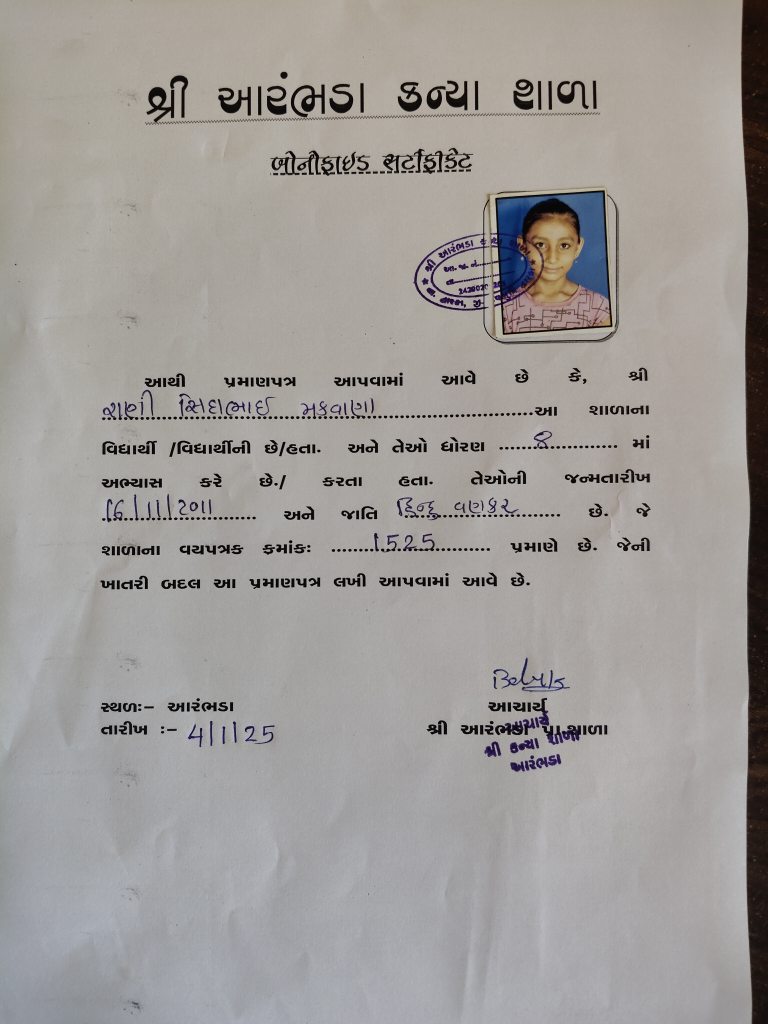 શ્રી આરંભડા કન્યા શાળા
બોનીફાઇડ સર્ટીફીકેટ
શ્રી આરંભડા
તા.
આથી પ્રમાણપત્ર આપવામાં આવે છે કે, શ્રી
રાણી સિદાભાઈ મકવાણા આ શાળાના
વિદ્યાર્થી /વિદ્યાર્થીની છે/હતા. અને તેઓ ધોરણ 8 માં
અભ્યાસ કરે છે./ કરતા હતા. તેઓની જન્મતારીખ
16/11/2011 અને જાતિ હિન્દુ વણકર છે. જે
શાળાના વયપત્રક ક્રમાંકઃ 1525 પ્રમાણે છે. જેની
ખાતરી બદલ આ પ્રમાણપત્ર લખી આપવામાં આવે છે.
સ્થળઃ– આરંભડા
આચાર્ય
તારીખ :– 4/1/25
શ્રી આરંભડા પ્રા.શાળા
આચાર્ય
શ્રી કન્યા શાળા
આરંભડા